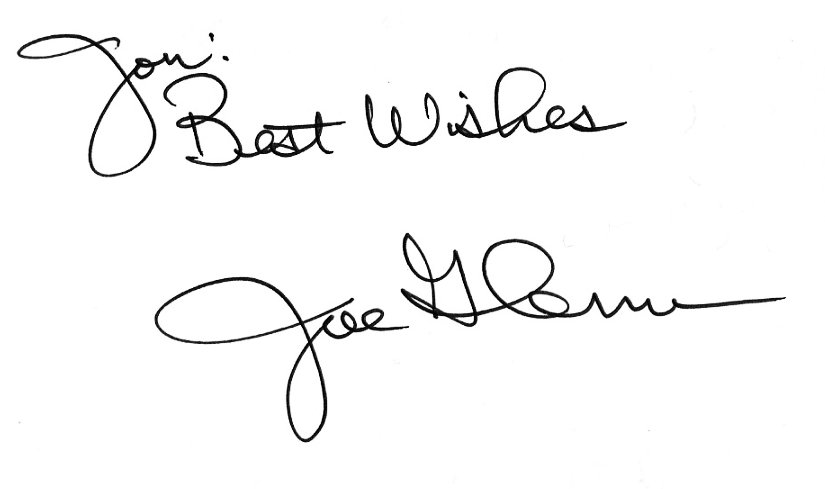 Jon:
Best Wishes
Joe Glenn